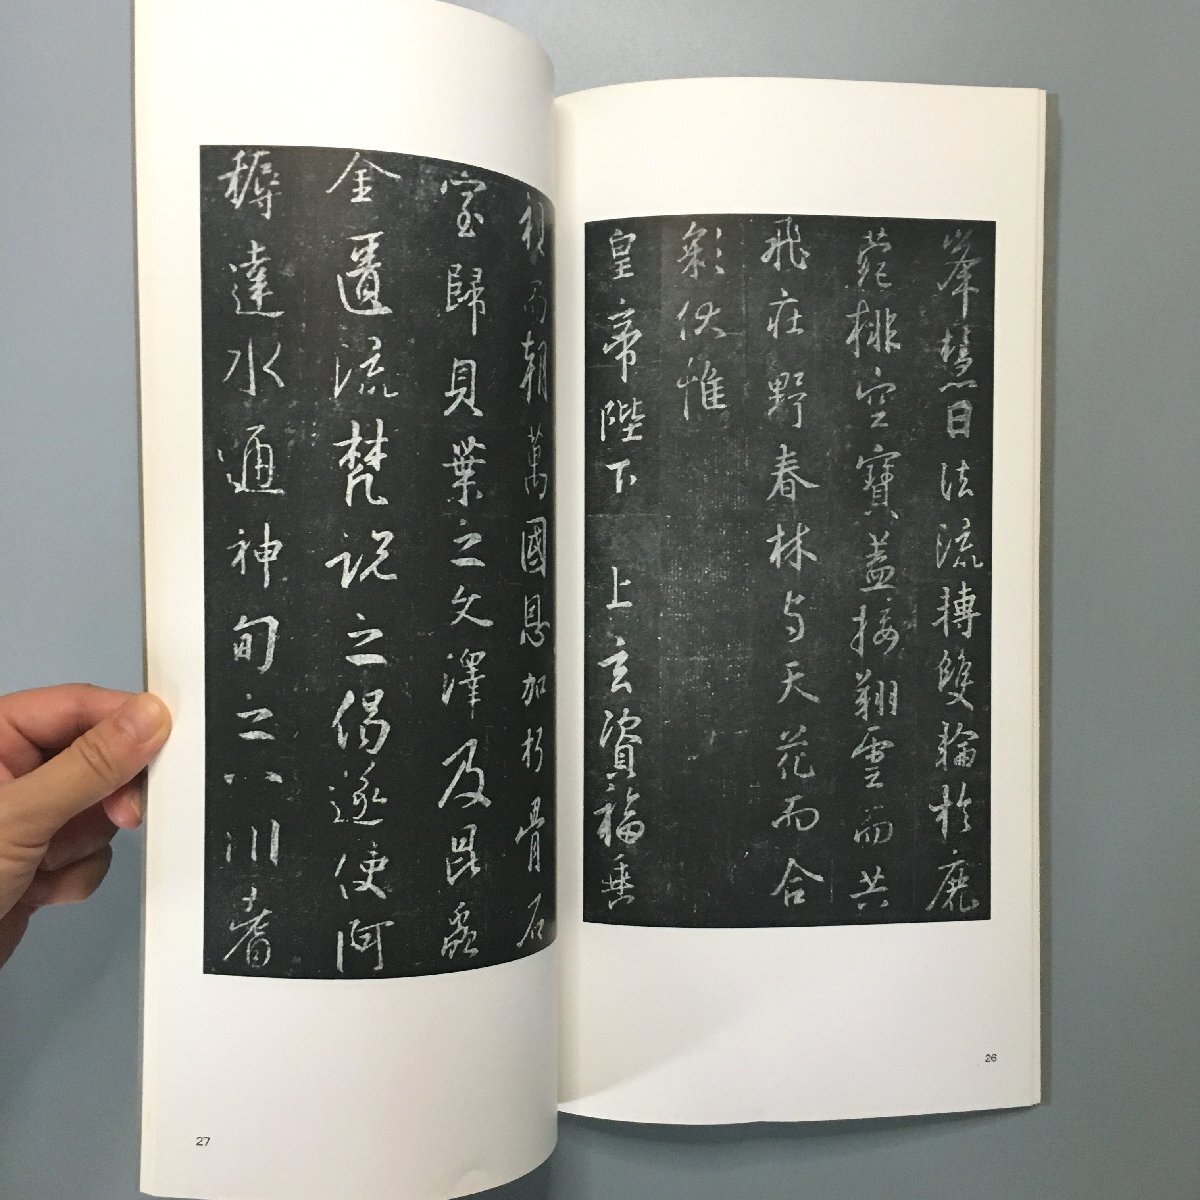 峯慧日法流轉雙輪於鹿
菀排空寶蓋接翔雲而共
飛莊野春林与天花而合
彩伏惟
皇帝陛下 上玄資福垂
26
衽而朝萬國恩加朽骨石
室歸貝葉之文澤及昆蟲
金匱流梵說之偈遂使阿
耨達水通神甸之八川耆
27